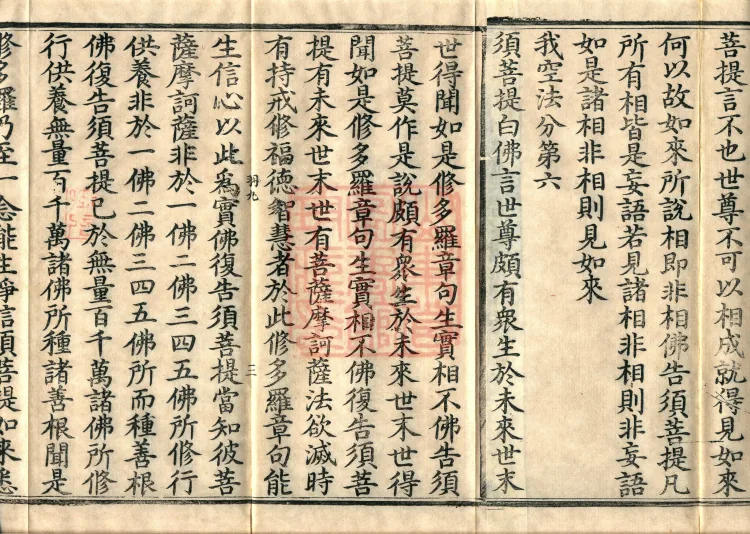 菩提言不也世尊不可以相成就得見如來
何以故如來所說相即非相佛告須菩提凡
所有相皆是妄語若見諸相非相則非妄語
如是諸相非相則見如來
我空法分第六
須菩提白佛言世尊頗有衆生於未來世末
世得聞如是修多羅章句生實相不佛告須
菩提莫作是說頗有衆生於未來世末世得
聞如是修多羅章句生實相不佛復告須菩
提有未來世末世有菩薩摩訶薩法欲滅時
有持戒修福德智慧者於此修多羅章句能
羽九 三
生信心以此爲實佛復告須菩提當知彼菩
薩摩訶薩非於一佛二佛三四五佛所修行
供養非於一佛二佛三四五佛所而種善根
佛復告須菩提已於無量百千萬諸佛所修
行供養無量百千萬諸佛所種諸善根聞是
修多羅乃至一念能生淨信須菩提如來悉